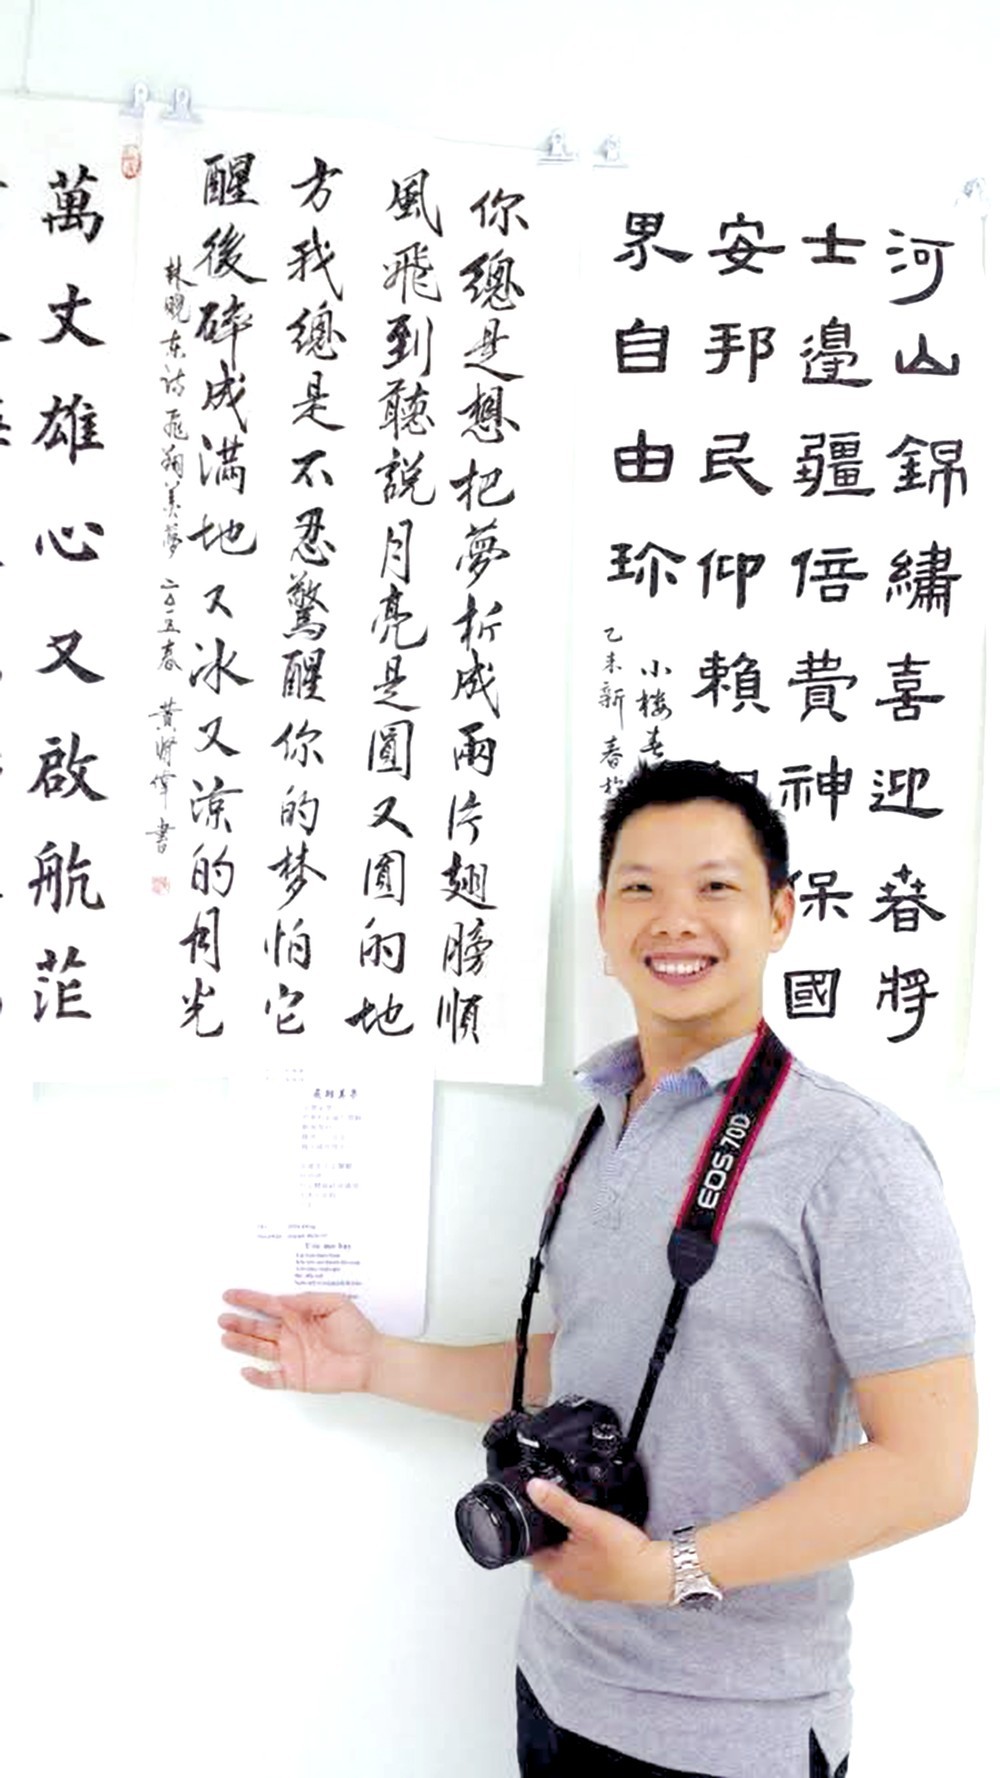 河山錦繡喜迎春將
士邊疆倍費神保國
安邦民仰賴
界自由珎
小楼春
乙未新春
你總是想把夢折成兩片翅膀順
風飛到聽説月亮是圓又圓的地
方我總是不忍驚醒你的梦怕它
醒後碎成满地又冰又凉的月光
林曉东诗飛翔美夢 二〇一五春 黄賢偉書
萬丈雄心又啟航茫
EOS 70D